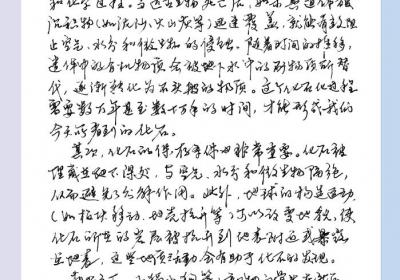 和化学过程。当远古生物死亡后,如果其遗体被
沉积物(如泥沙、火山灰等)迅速覆盖,就能有效阻
止空气、水分和微生物的侵蚀。随着时间的推移,
遗体中的有机物质会被地下水中的矿物质所替
代,逐渐转化为石头般的物质。这个石化过程
需要数万年甚至数十万年的时间,才能形成我们
今天所看到的化石。
其次,化石的保存条件也非常重要。化石被
埋藏在地下深处,与空气、水分和微生物隔绝,
从而避免了分解作用。此外,地球的构造运动
(如板块移动、地壳抬升等)可以改变地貌,使
化石所在的岩层被抬升到地表附近或暴露
在地表,这些地质活动会有助于化石的发现。